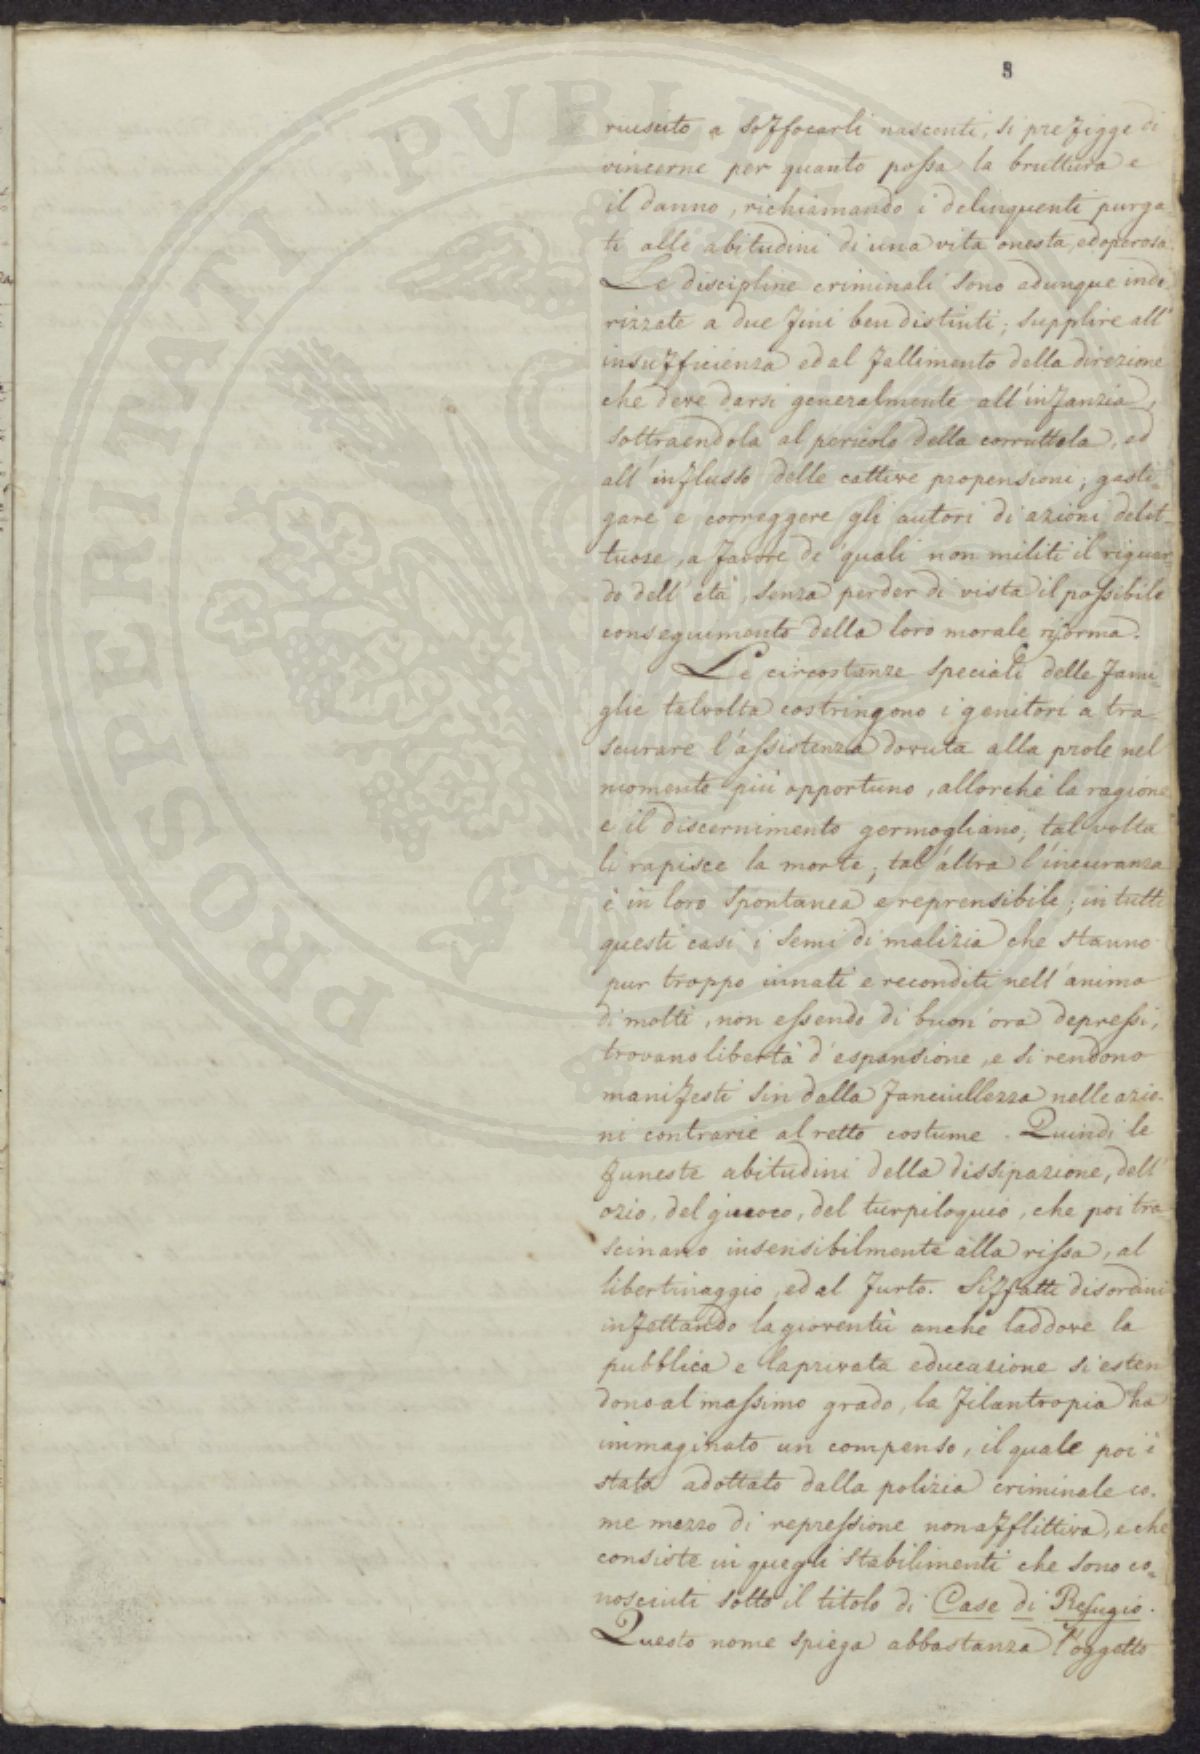 8
riuscito a soffocarli nascenti, si prefigge di
vincerne per quanto possa la bruttura e
il danno, richiamando i delinquenti purga-
ti alle abitudini di una vita onesta, ed operosa.
Le discipline criminali sono adunque indi-
rizzate a due fini ben distinti; supplire all'
insufficienza ed al fallimento della direzione
che deve darsi generalmente all'infanzia,
sottraendola al pericolo della corruttela, ed
all'influsso delle cattive propensioni; gasti-
gare e correggere gli autori di azioni delit-
tuose, a favore de' quali non militi il riguar-
do dell'età, senza perder di vista il possibile
conseguimento della loro morale riforma.
Le circostanze speciali delle fami-
glie talvolta costringono i genitori a tra-
scurare l'assistenza dovuta alla prole nel
momento più opportuno, allorchè la ragione
e il discernimento germogliano; tal volta
li rapisce la morte; tal'altra l'incuranza
è in loro spontanea e reprensibile; in tutti
questi casi i semi di malizia che stanno
pur troppo innati e reconditi nell'animo
di molti, non essendo di buon'ora depressi,
trovano libertà d'espansione, e si rendono
manifesti sin dalla fanciullezza nelle azio-
ni contrarie al retto costume. Quindi le
funeste abitudini della dissipazione, dell'
ozio, del giuoco, del turpiloquio, che poi tra-
scinano insensibilmente alla rissa, al
libertinaggio, ed al furto. Siffatti disordini
infettando la gioventù anche laddove la
pubblica e la privata educazione si esten
dono al massimo grado, la filantropia ha
immaginato un compenso, il quale poi è
stato adottato dalla polizia criminale co-
me mezzo di repressione non afflittiva, e che
consiste in quegli stabilimenti che sono co-
nosciuti sotto il titolo di Case di Refugio.
Questo nome spiega abbastanza l'oggetto
PROSPERITATI PVBLICAE